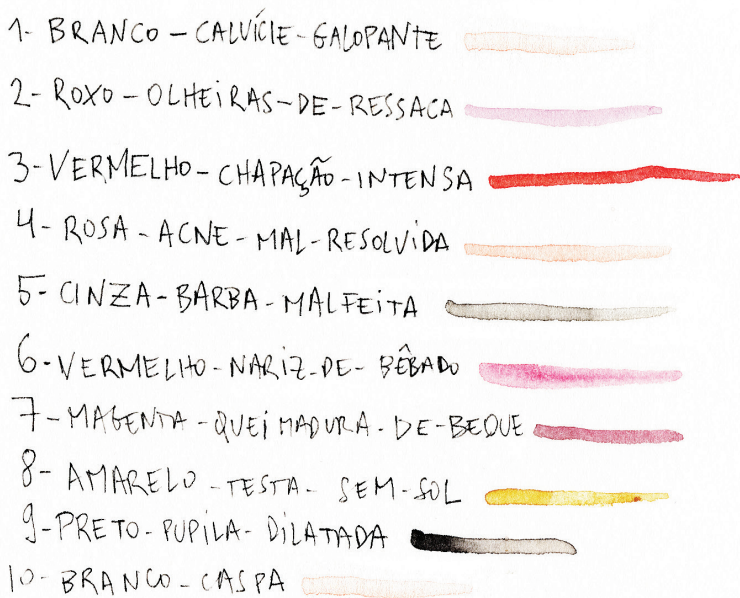 1- BRANCO - CALVÍCIE - GALOPANTE
2- ROXO - OLHEIRAS - DE - RESSACA
3- VERMELHO - CHAPAÇÃO - INTENSA
4- ROSA - ACNE - MAL - RESOLVIDA
5- CINZA - BARBA - MALFEITA
6- VERMELHO - NARIZ - DE - BÊBADO
7- MAGENTA - QUEIMADURA - DE - BEQUE
8- AMARELO - TESTA - SEM - SOL
9- PRETO - PUPILA - DILATADA
10- BRANCO - CASPA